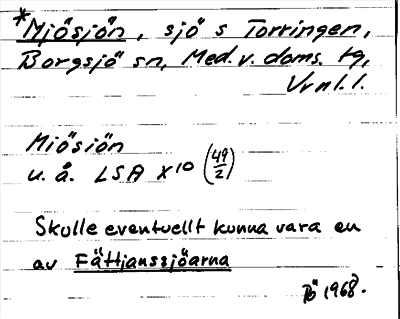 *Mjösjön, sjö s Torringen,
Borgsjö sn, Med. v. doms. tg,
Vrnl. l.
Mjösjön
u. å. LSA X10 (49/2)
Skulle eventuellt kunna vara en
av Fättjanssjöarna
PÖ 1968.